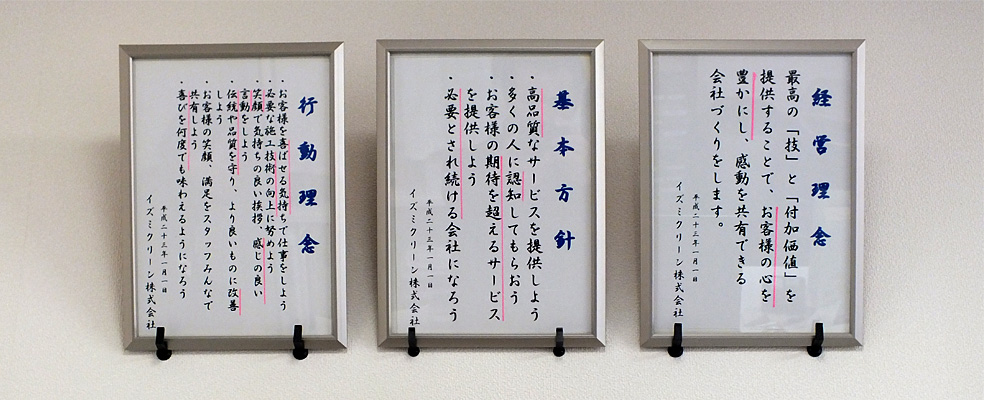 経営理念
最高の「技」と「付加価値」を
提供することで、お客様の心を
豊かにし、感動を共有できる
会社づくりをします。
平成二十三年一月一日
イズミクリーン株式会社
基本方針
・高品質なサービスを提供しよう
・多くの人に認知してもらおう
・お客様の期待を超えるサービス
を提供しよう
・必要とされ続ける会社になろう
平成二十三年一月一日
イズミクリーン株式会社
行動理念
・お客様を喜ばせる気持ちで仕事をしよう
・必要な施工技術の向上に努めよう
・笑顔で気持ちの良い挨拶、感じの良い
言動をしよう
・伝統や品質を守り、より良いものに改善
しよう
・お客様の笑顔、満足をスタッフみんなで
共有しよう
・喜びを何度でも味わえるようになろう
平成二十三年一月一日
イズミクリーン株式会社